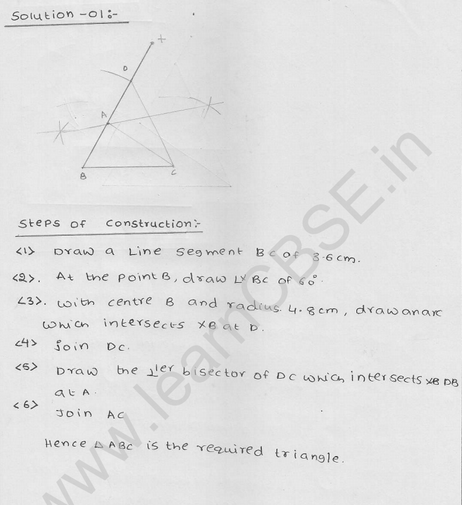 Solution-01:-
x
D
A
B
C
Steps of Construction:-
<1> Draw a Line Segment BC of 3.6cm.
<2>. At the point B, draw ∠Y BC of 60°.
<3>. With centre B and radius 4.8cm, draw an arc
which intersects XB at D.
<4> Join DC.
<5> Draw the ⊥er bisector of DC which intersects XB DB
at A.
<6> Join AC
Hence △ABC is the required triangle.
www.learnCBSE.in